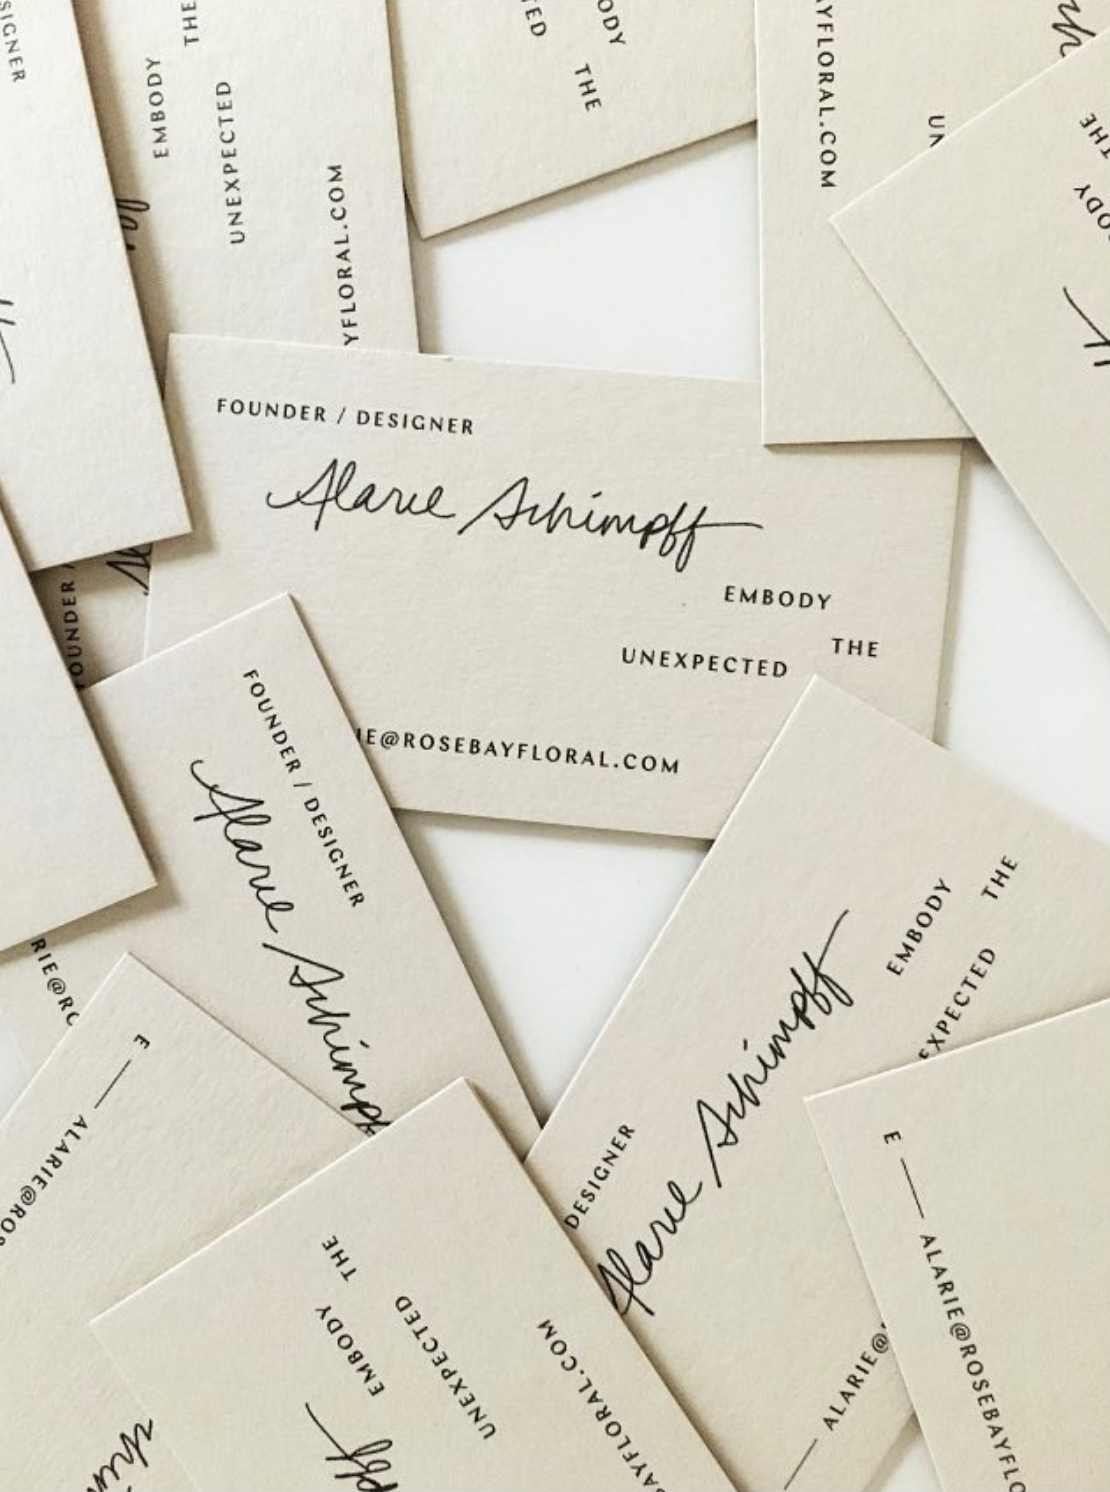 SIGNER
EMBODY
THE
UNEXPECTED
YFLORAL.COM
TED
ODY
THE
YFLORAL.COM
UN
THE
ODY
FOUNDER / DESIGNER
Alarie Schimpff
EMBODY
THE
UNEXPECTED
IE@ROSEBAYFLORAL.COM
FOUNDER /
FOUNDER / DESIGNER
Alarie Schimpf
RIE@RO
EMBODY
THE
EXPECTED
DESIGNER
Alarie Schimpff
ALARIE@
E — ALARIE@ROS
THE
EMBODY
UNEXPECTED
BAYFLORAL.COM
E — ALARIE@ROSEBAYFLO